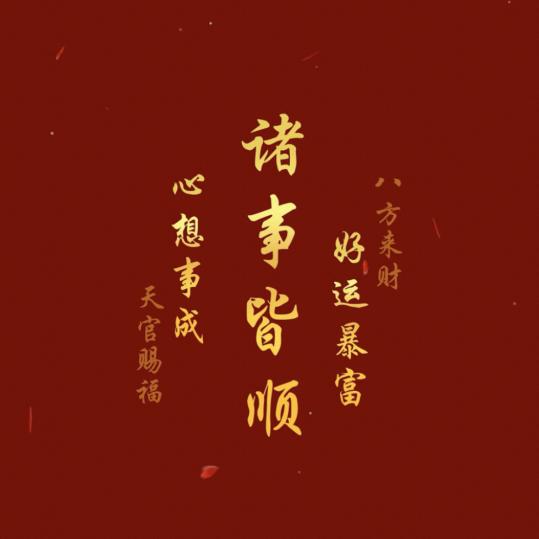 八方来财
好运暴富
诸事皆顺
心想事成
天官赐福